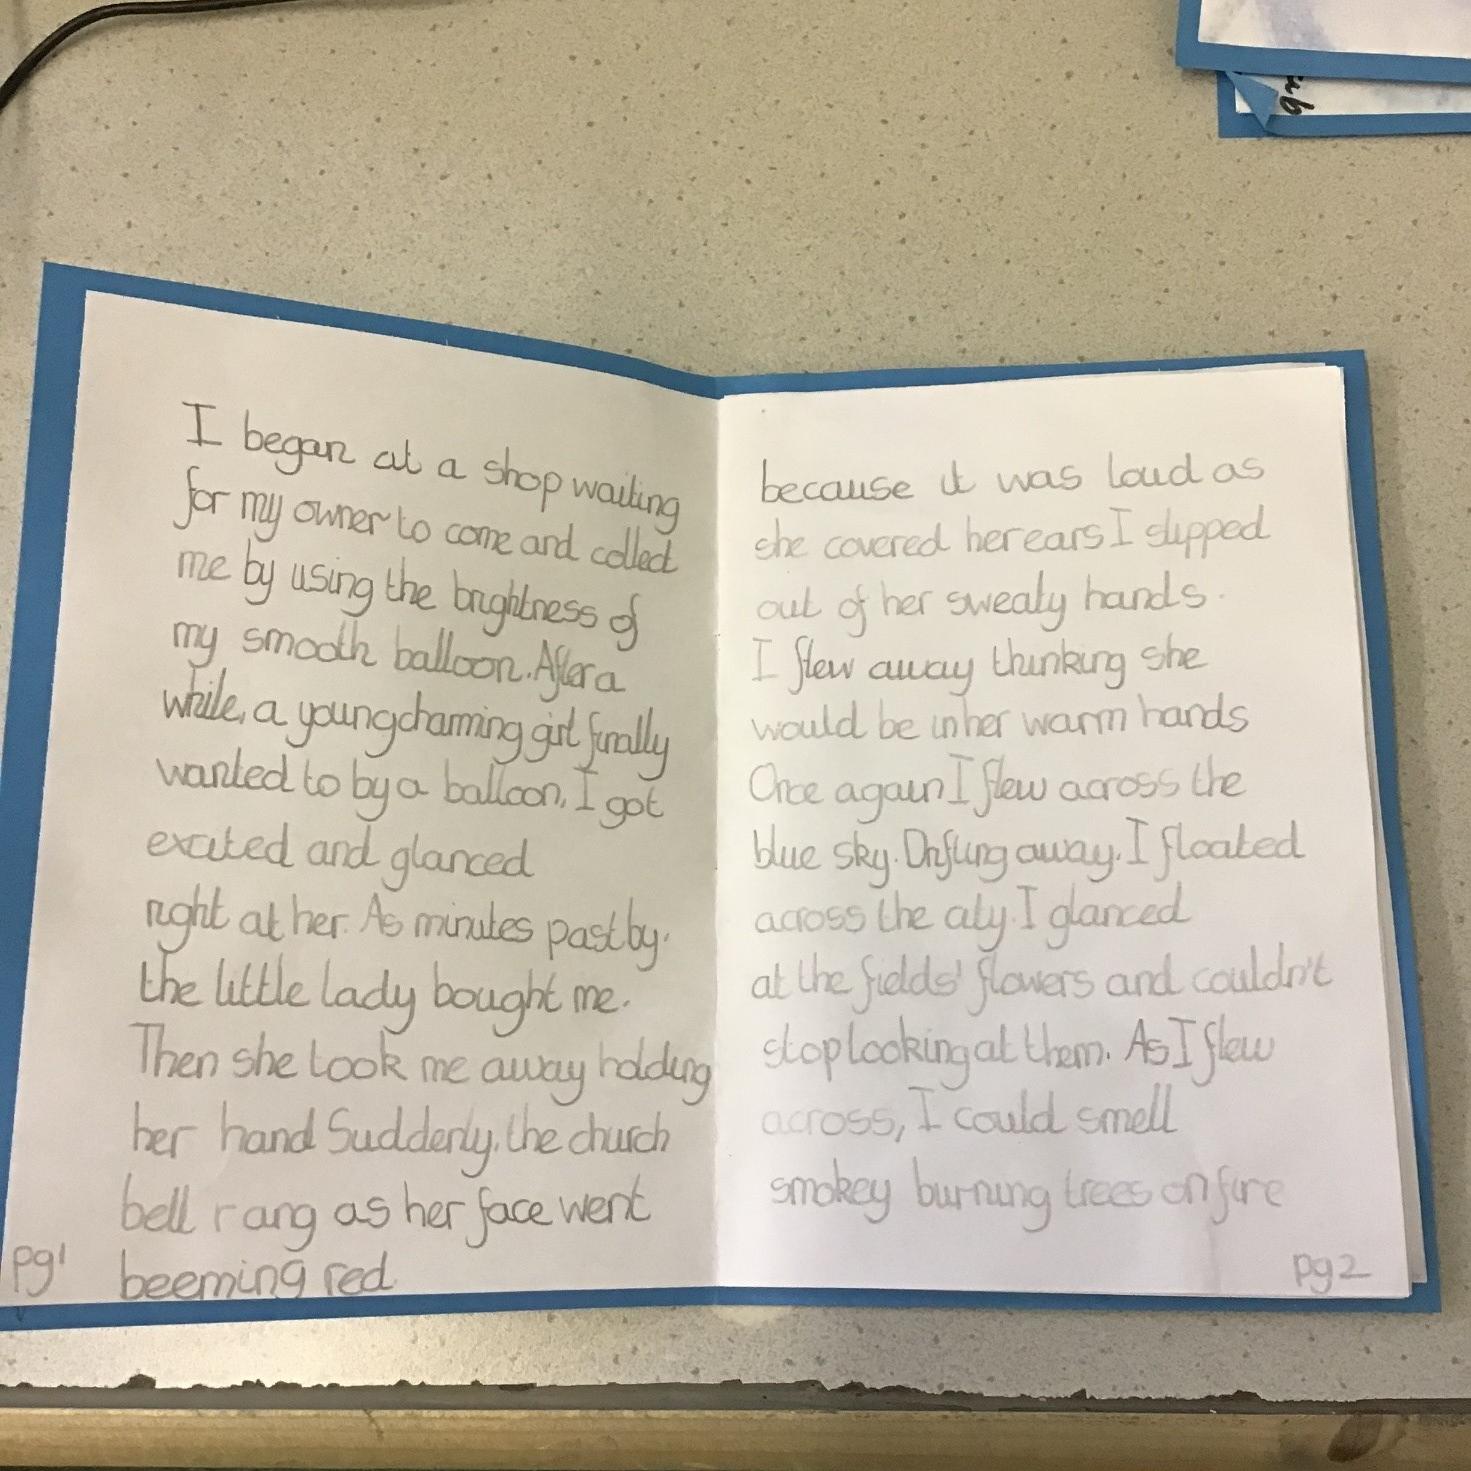 I began at a shop waiting
for my owner to come and collect
me by using the brightness of
my smooth balloon. After a
while, a young charming girl finally
wanted to by a balloon, I got
excited and glanced
right at her. As minutes past by.
the little lady bought me.
Then she took me away holding
her hand Suddenly, the church
bell rang as her face went
beeming red
pg1
because it was loud as
she covered her ears I slipped
out of her sweaty hands.
I flew away thinking she
would be in her warm hands
Once again I flew across the
blue sky. Drifting away. I floated
across the city. I glanced
at the fields' flowers and couldn't
stop looking at them. As I flew
across, I could smell
smokey burning trees on fire
pg2